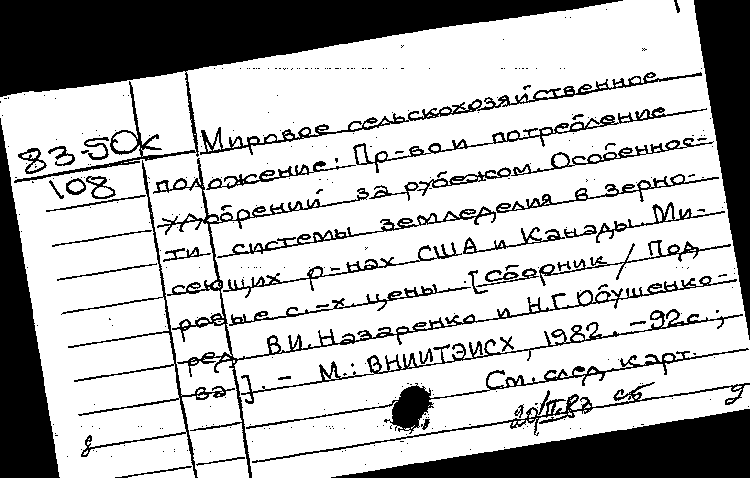 83-50к
108
Мировое сельскохозяйственное
положение: Пр-во и потребление
удобрений за рубежом. Особеннос-
ти системы земледелия в зерно-
сеющих р-нах США и Канады. Ми-
ровые с.-х. цены. [Сборник / Под
ред. В.И. Назаренко и Н.Г. Обушенко-
ва]. - М.: ВНИИТЭИСХ, 1982. - 92с.;
См. след. карт.
20/II.83 сб